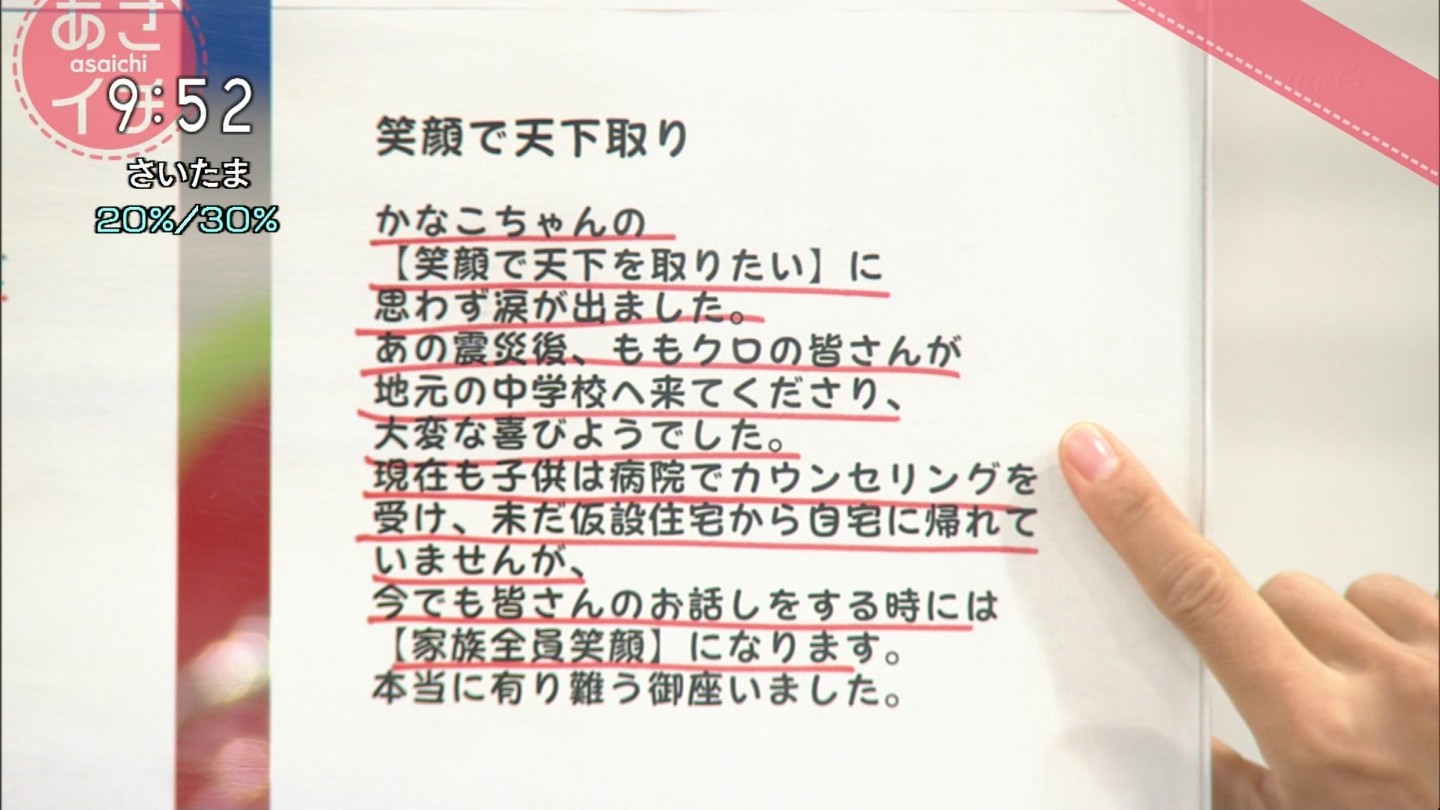 あさ
asaichi
イチ
9:52
さいたま
20%/30%
笑顔で天下取り
かなこちゃんの
【笑顔で天下を取りたい】に
思わず涙が出ました。
あの震災後、ももクロの皆さんが
地元の中学校へ来てくださり、
大変な喜びようでした。
現在も子供は病院でカウンセリングを
受け、未だ仮設住宅から自宅に帰れて
いませんが、
今でも皆さんのお話しをする時には
【家族全員笑顔】になります。
本当に有り難う御座いました。